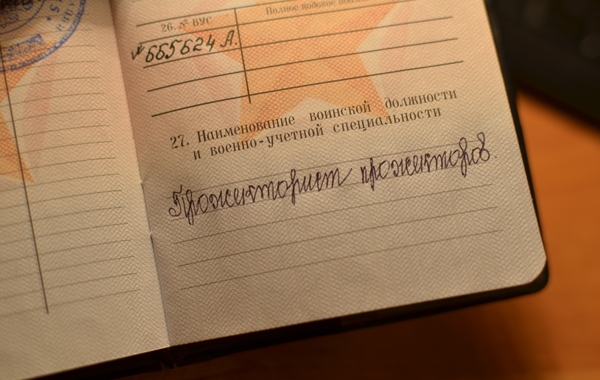 26. № ВУС
Полное кодовое
№665624 А.
27. Наименование воинской должности
и военно-учетной специальности
Прожекторист прожекторов.